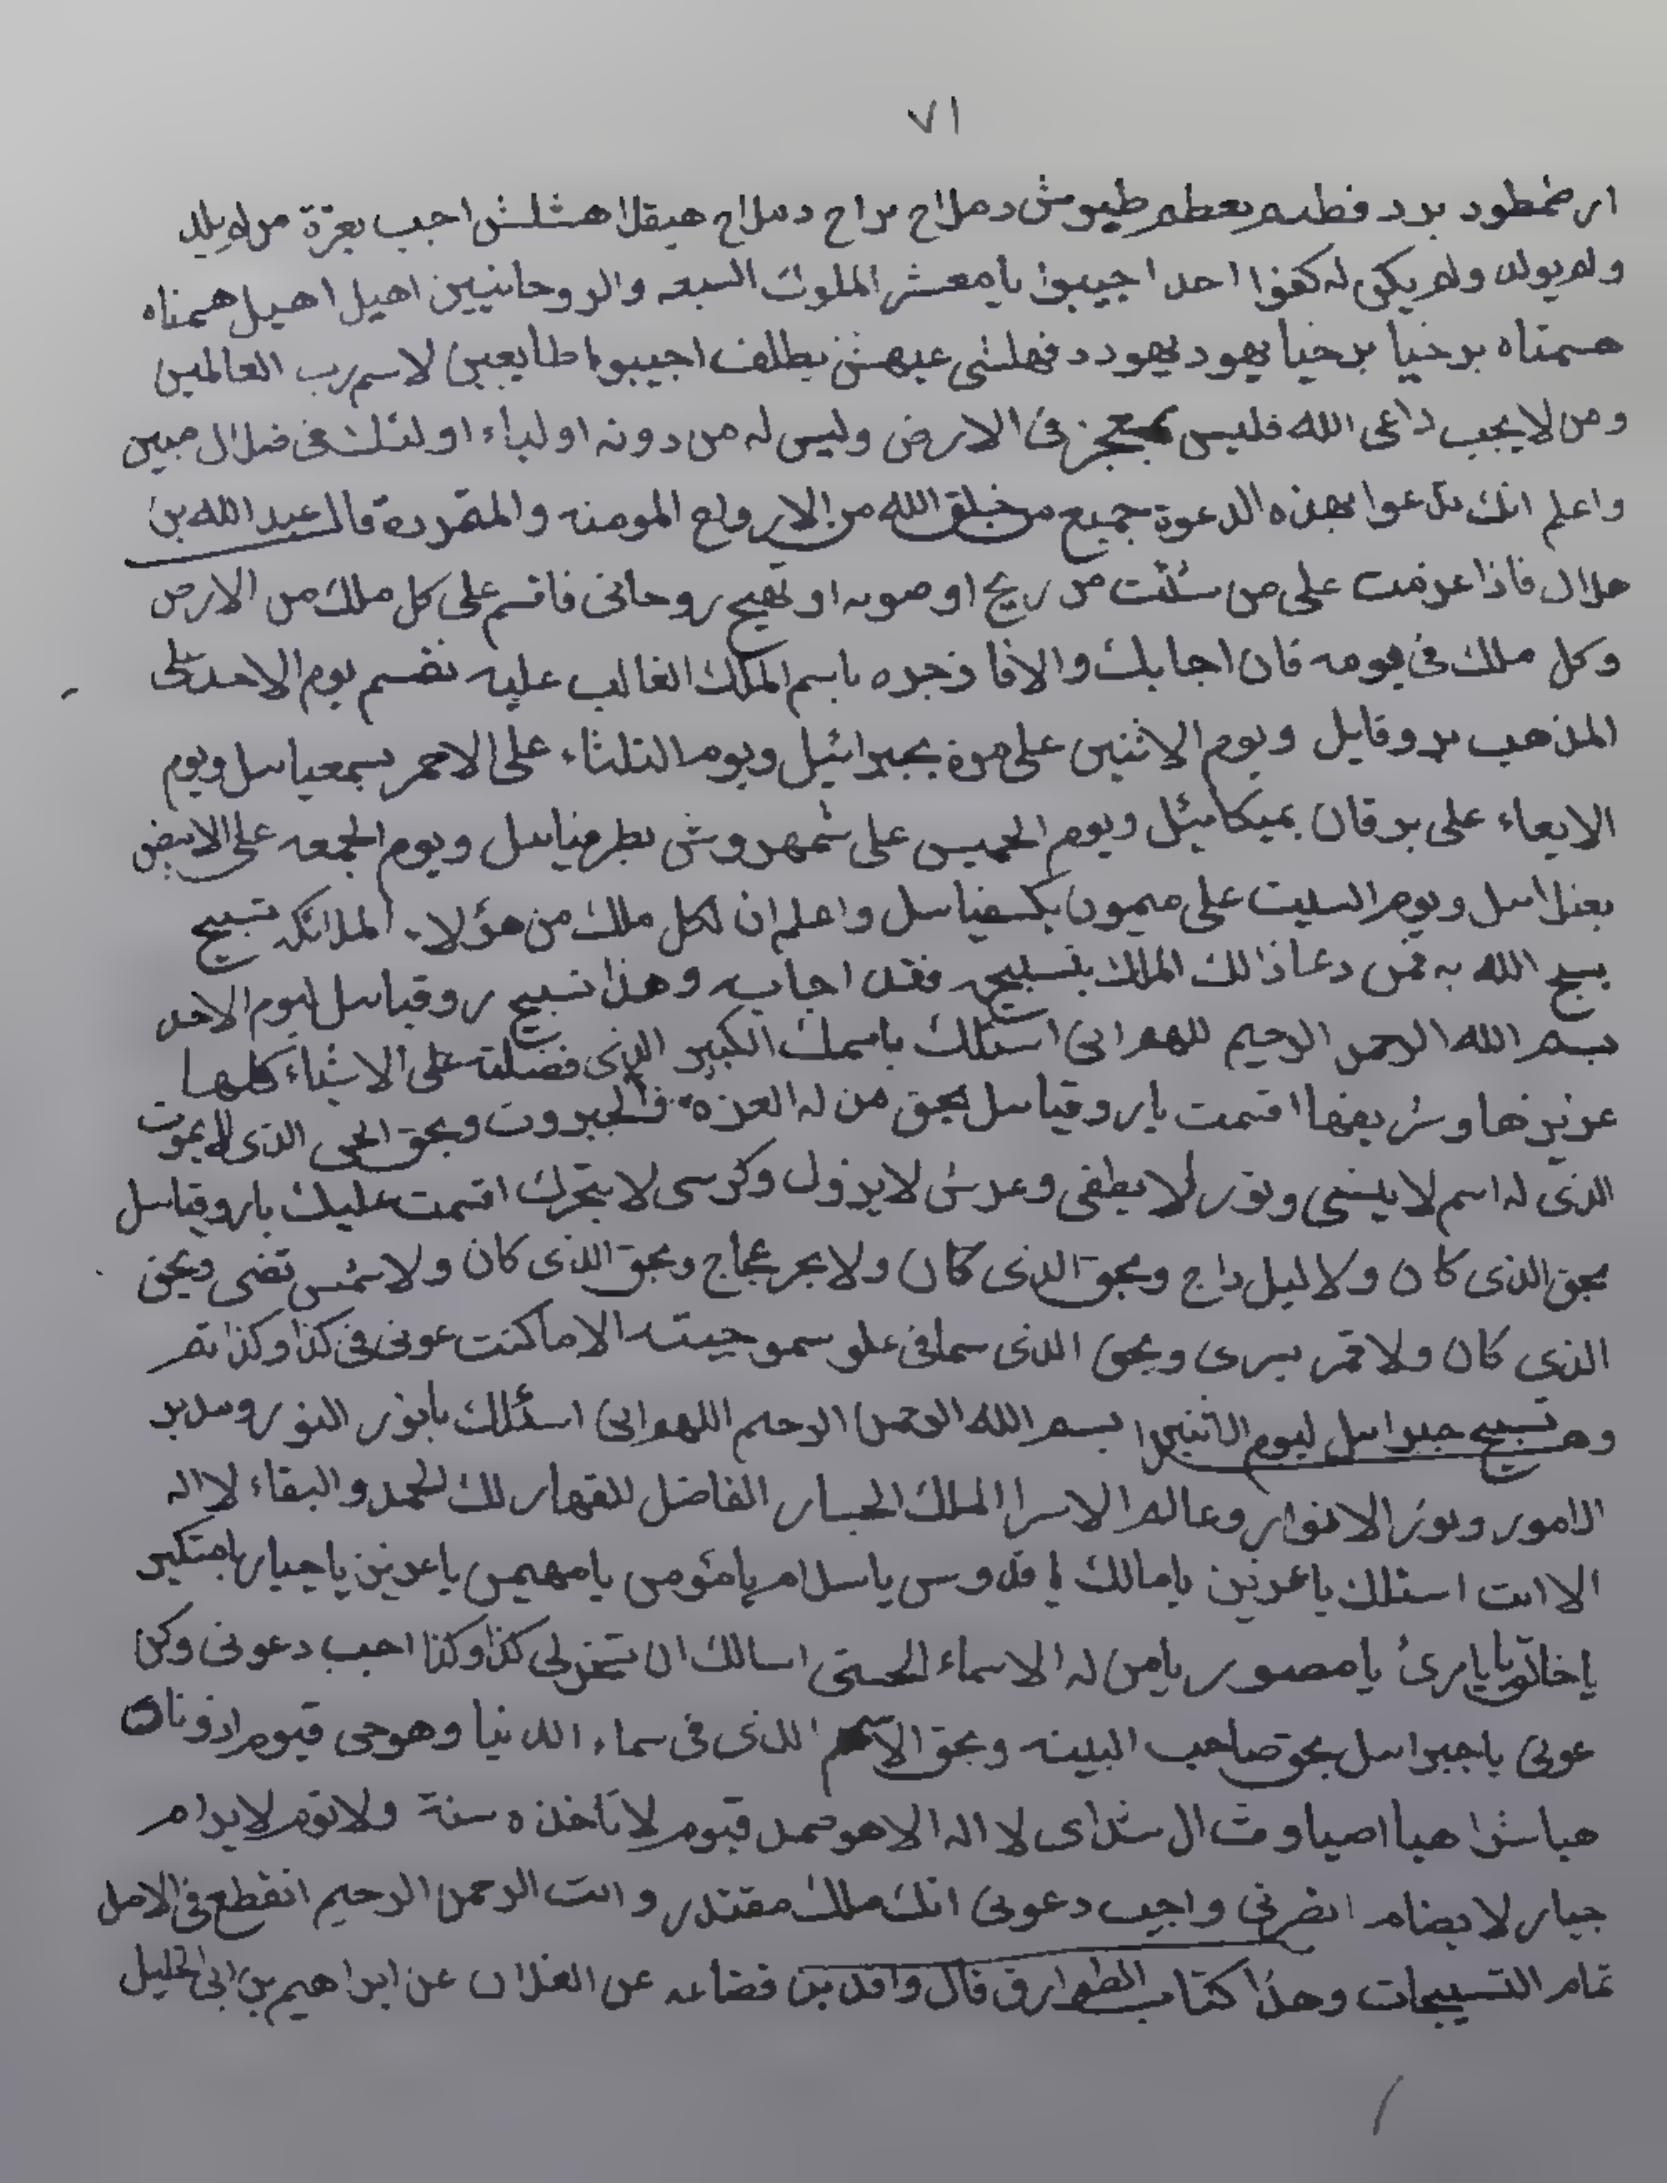 ٧١
ارطمطود برد فطسم بعطم طيوش دملاح براح دملاح هيقلا هشلش اجب بعزة من لم يلد
ولم يولد ولم يكن له كفوا احد اجيبوا يا معشر الملوك السبعه والروحانيين اهيل اهيل همناه
همناه برخيا برخيا يهود يهودد فهلش عبهش بطلف اجيبوا طايعين لاسم رب العالمين
ومن لا يجب داعى الله فليس بمعجز فى الارض وليس له من دونه اولياء اولئك فى ضلال مبين
واعلم انك تدعوا بهذه الدعوة جميع من خلق الله من الارواح المومنه والمتمردة قال عبد الله بن
هلال فاذا عزمت على من شئت من ريح او صوبه او تهيج روحانى فاقسم على كل ملك من الارض
وكل ملك فى يومه فان اجابك والا فا زجره باسم الملك الغالب عليه تقسم يوم الاحد على
المذهب بروقايل ويوم الاثنين على مرة بجبرائيل ويوم الثلثاء على الاحمر بسمعيائل ويوم
الابعاء على برقان بميكائيل ويوم الخميس على شمهروش بطرفيائل ويوم الجمعه على الابيض
بعنلائل ويوم السبت على ميمون بكسفيائل واعلم ان لكل ملك من هؤلاء الملائكه تسبيح
يسبح الله به فمن دعا ذالك الملك بتسبيحه فقد اجابه وهذا تسبيح روقيائل ليوم الاحد
بسم الله الرحمن الرحيم اللهم انى اسئلك باسمك الكبير الذى فضلته على الاشياء كلها
عزيزها وشريفها اقتمت ياروقيائل بحق من له العزه والجبروت وبحق الحى الذى لا يموت
الذى له اسم لا ينسى ونور لا يطفى وعرش لا يزول وكرسى لا يتحرك اقتمت عليك ياروقيائل
بحق الذى كان ولا ليل داج وبحق الذى كان ولا بحر عجاج وبحق الذى كان ولا شمس تضى وبحق
الذى كان ولا قمر يسرى وبحق الذى سما فى علو سمو حيثه الا ما كنت عونى فى كذا وكذا تم
وهـ تسبيح جبرائل ليوم الاثنين بسم الله الرحمن الرحيم اللهم انى اسئلك يا نور النور ومدبر
الامور ونور الانوار وعالم الاسرا الملك الجبار الفاضل القهار لك الحمد والبقاء لا اله
الا انت اسئلك يا عزيز يا مالك يا قدوس يا سلام يا مئومن يا مهيمن يا عزيز يا جبار يا متكبر
يا خالق يا بارئ يا مصور يا من له الاسماء الحسنى اسالك ان تسخر لى كذا وكذا اجب دعوتى وكن
عونى يا جبرائل بحق صاحب البينه وبحق الاسم الذى فى سماء الدنيا وهو حى قيوم ادوناى
هيا شرا هيا اصباوث ال شداى لا اله الا هو صمد قيوم لا تاخذه سنة ولا نوم لا يرام
جبار لا يضام انصرنى واجب دعوتى انك ملك مقتدر وانت الرحمن الرحيم انقطع فى الاصل
تمام التسبيحات وهذا كتاب الطوارق قال واقد بن قضاعه عن العلان عن ابراهيم بن ابى الخليل